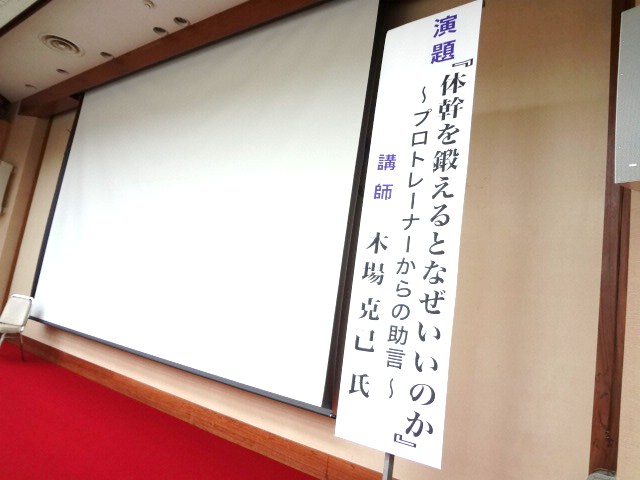 演題『体幹を鍛えるとなぜいいのか』
～プロトレーナーからの助言～
講師 木場克己氏